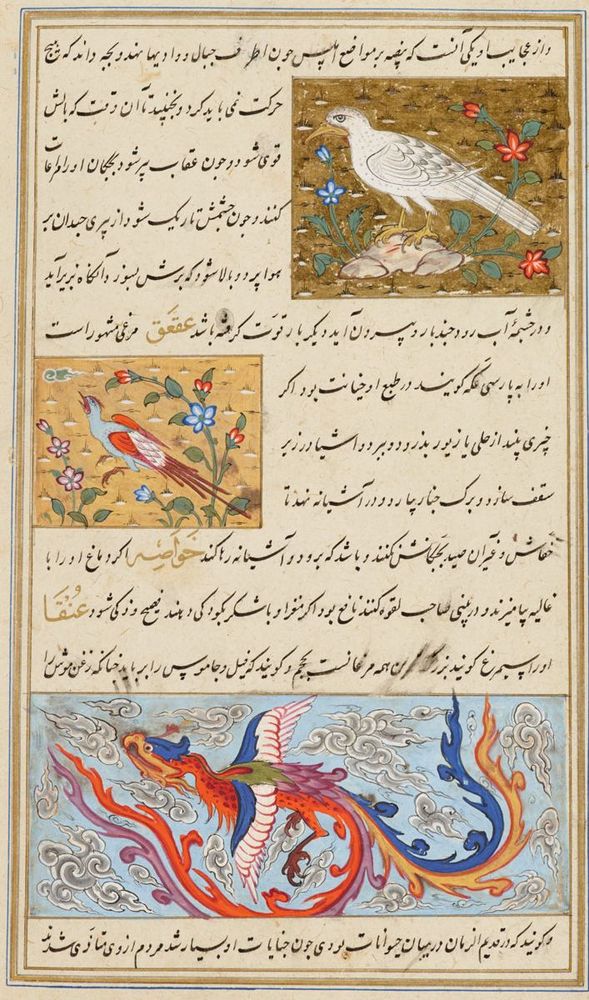 و از عجایب او یکی آنست که بیضه بر مواضع املس چون اطراف جبال و وادیها بنهد و بچه داند که هیچ
حرکت نمی باید کرد و نجنبد تا آن وقت که بالش
قوی شود و چون عقاب پیر شود بچگان او را مراعات
کنند و چون چشمش تاریک شود از پیری چندان بر
هوا پرد و بالا شود که پرش بسوزد آنگاه بزیر آید
و در چشمهٔ آب رود چند بار و بیرون آید دیگر بار قوت گرفته باشد عقعق مرغی مشهور است
او را به پارسی عکه گویند در طبع او خیانت بود اگر
چیزی بیند از حلی یا زیور بدزدد و ببرد و آشیا در زیر
سقف سازد و برک چنار بیارد و در آشیانه نهد تا
خفاش و غیر آن صید بچکانش نکنند و باشد که برود و آشیانه رها کند خواصه اکر دماغ او را با
غالیه بیامیزند و در بینی صاحب لقوه کنند نافع بود اکر مغز او با شکر کودکی دهند فصیح و زکی شود عنقا
او را سیمرغ گویند بزرگ‌ترین همه مرغانست بحجم و گویند که فیل و جاموس را برباید چنانکه زغن موش را
و گویند که در قدیم الزمان در میان حیوانات بودی چون جنایات او بسیار شد مردم از وی متاذی شدند